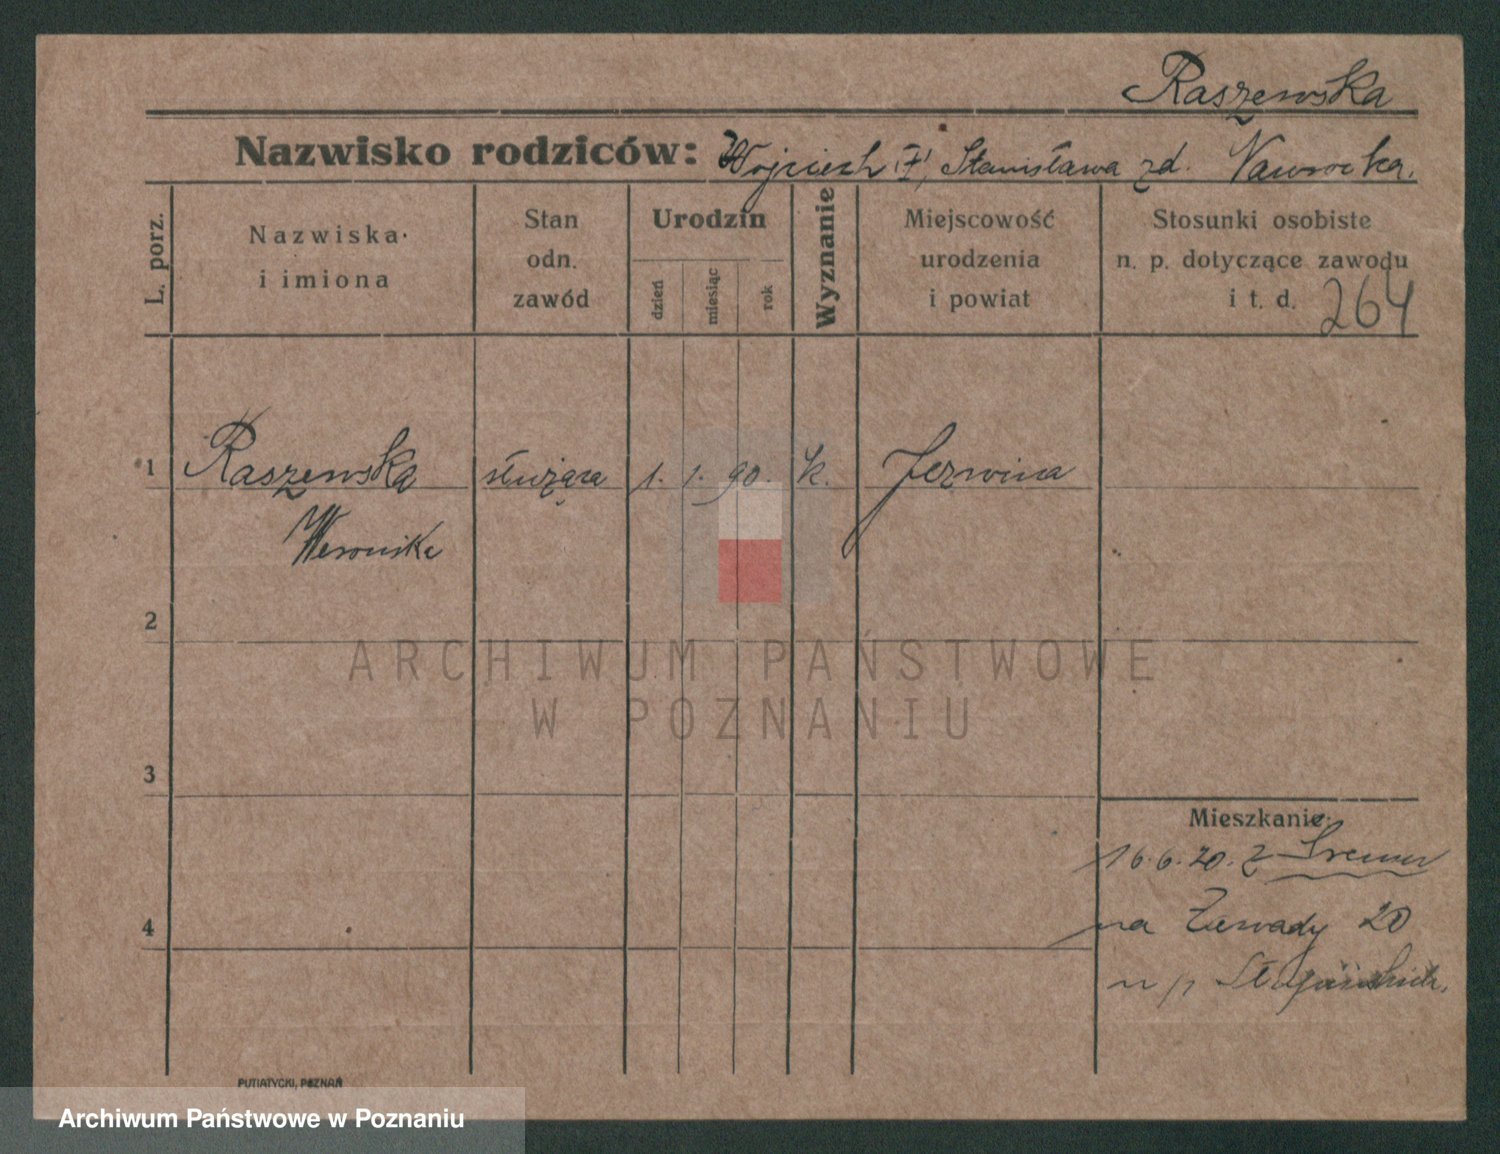 Raszewska
Nazwisko rodziców: Wojciech Stanisława zd. Nawrocka.
L. porz.
Nazwiska
i imiona
Stan
odn.
zawód
Urodzin
dzień
miesiąc
rok
Wyznanie
Miejscowość
urodzenia
i powiat
Stosunki osobiste
n. p. dotyczące zawodu
i t. d. 264
1 Raszewska służąca 1. 1. 90. k. Jezwina
Weronika
2
3
4
Mieszkanie.
16.6.20. z Śremu
na Zawady 20
u p.
ARCHIWUM PAŃSTWOWE
W POZNANIU
PUTIATYCKI, POZNAŃ
Archiwum Państwowe w Poznaniu